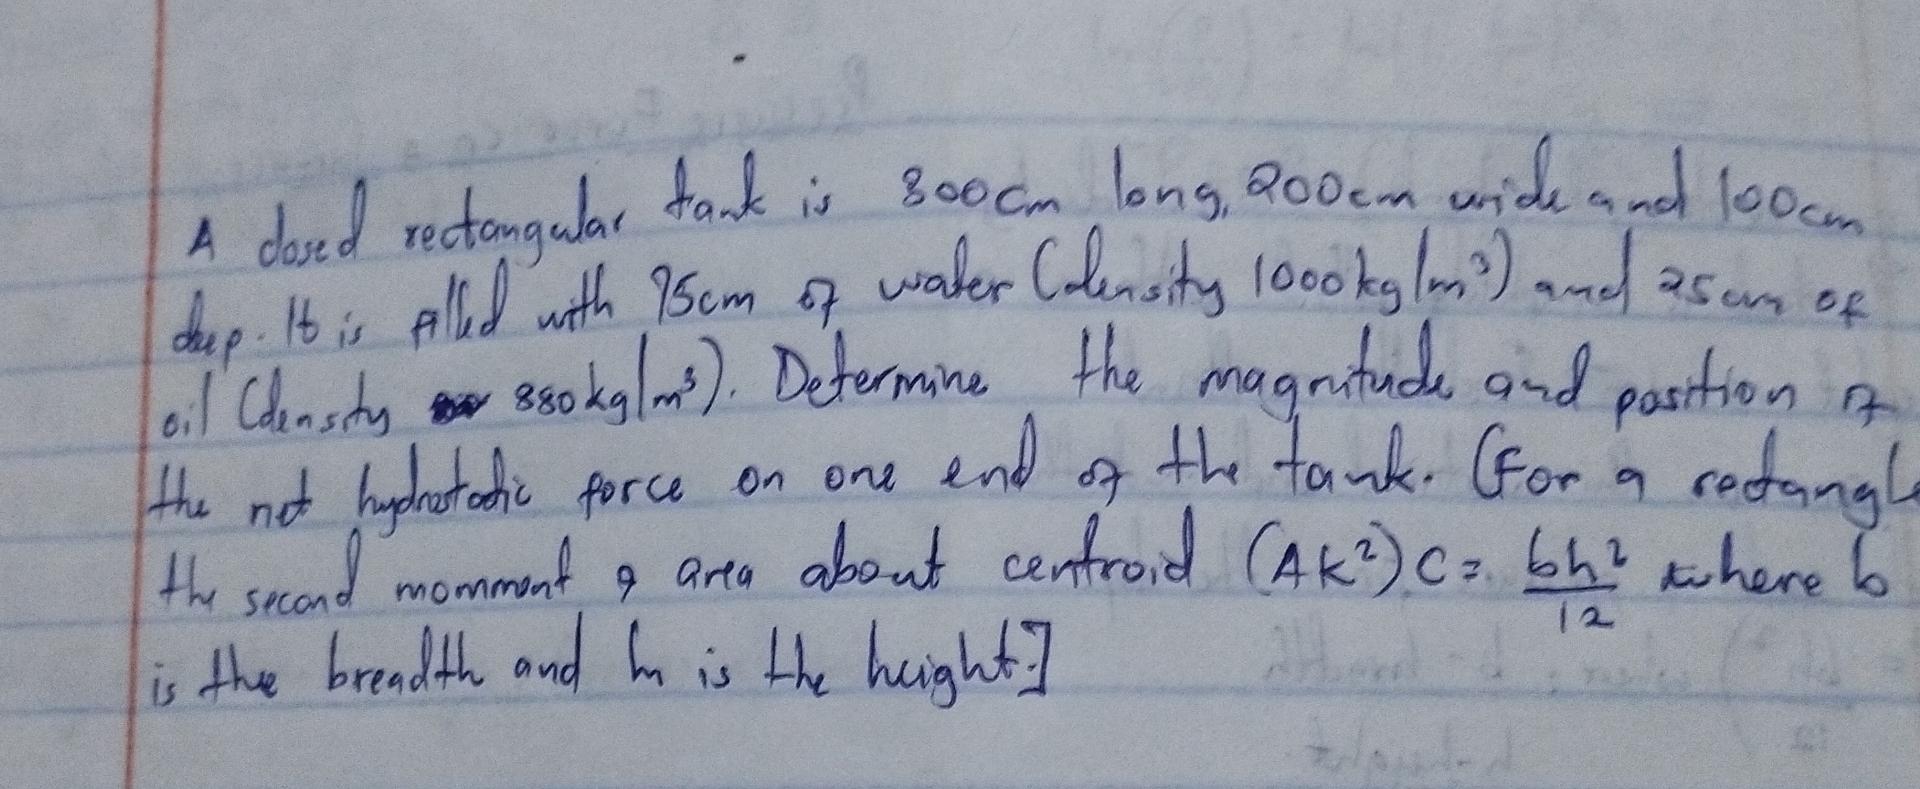 A closed rectangular tank is 300cm long, 200cm wide and 100cm
deep. It is filled with 75cm of water (density 1000kg/m³) and 25cm of
oil (density 880kg/m³). Determine the magnitude and position of
the net hydrostatic force on one end of the tank. (For a rectangle
the second momment of area about centroid (AK²)C = bh²/12 where b
is the breadth and h is the height.]